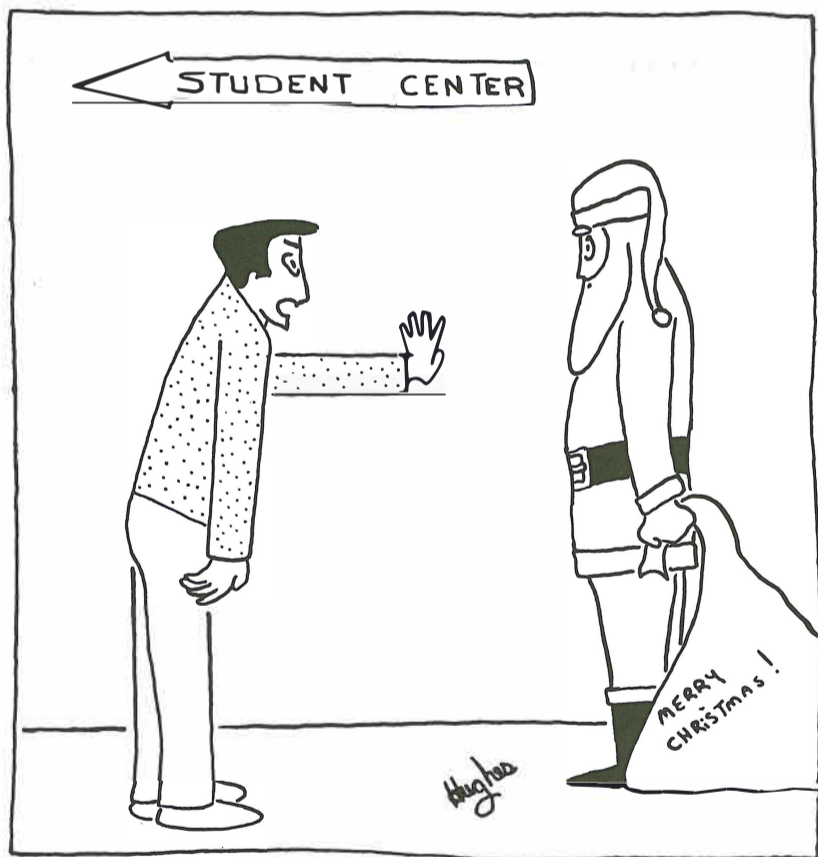 STUDENT CENTER
MERRY
CHRISTMAS!
Hughes